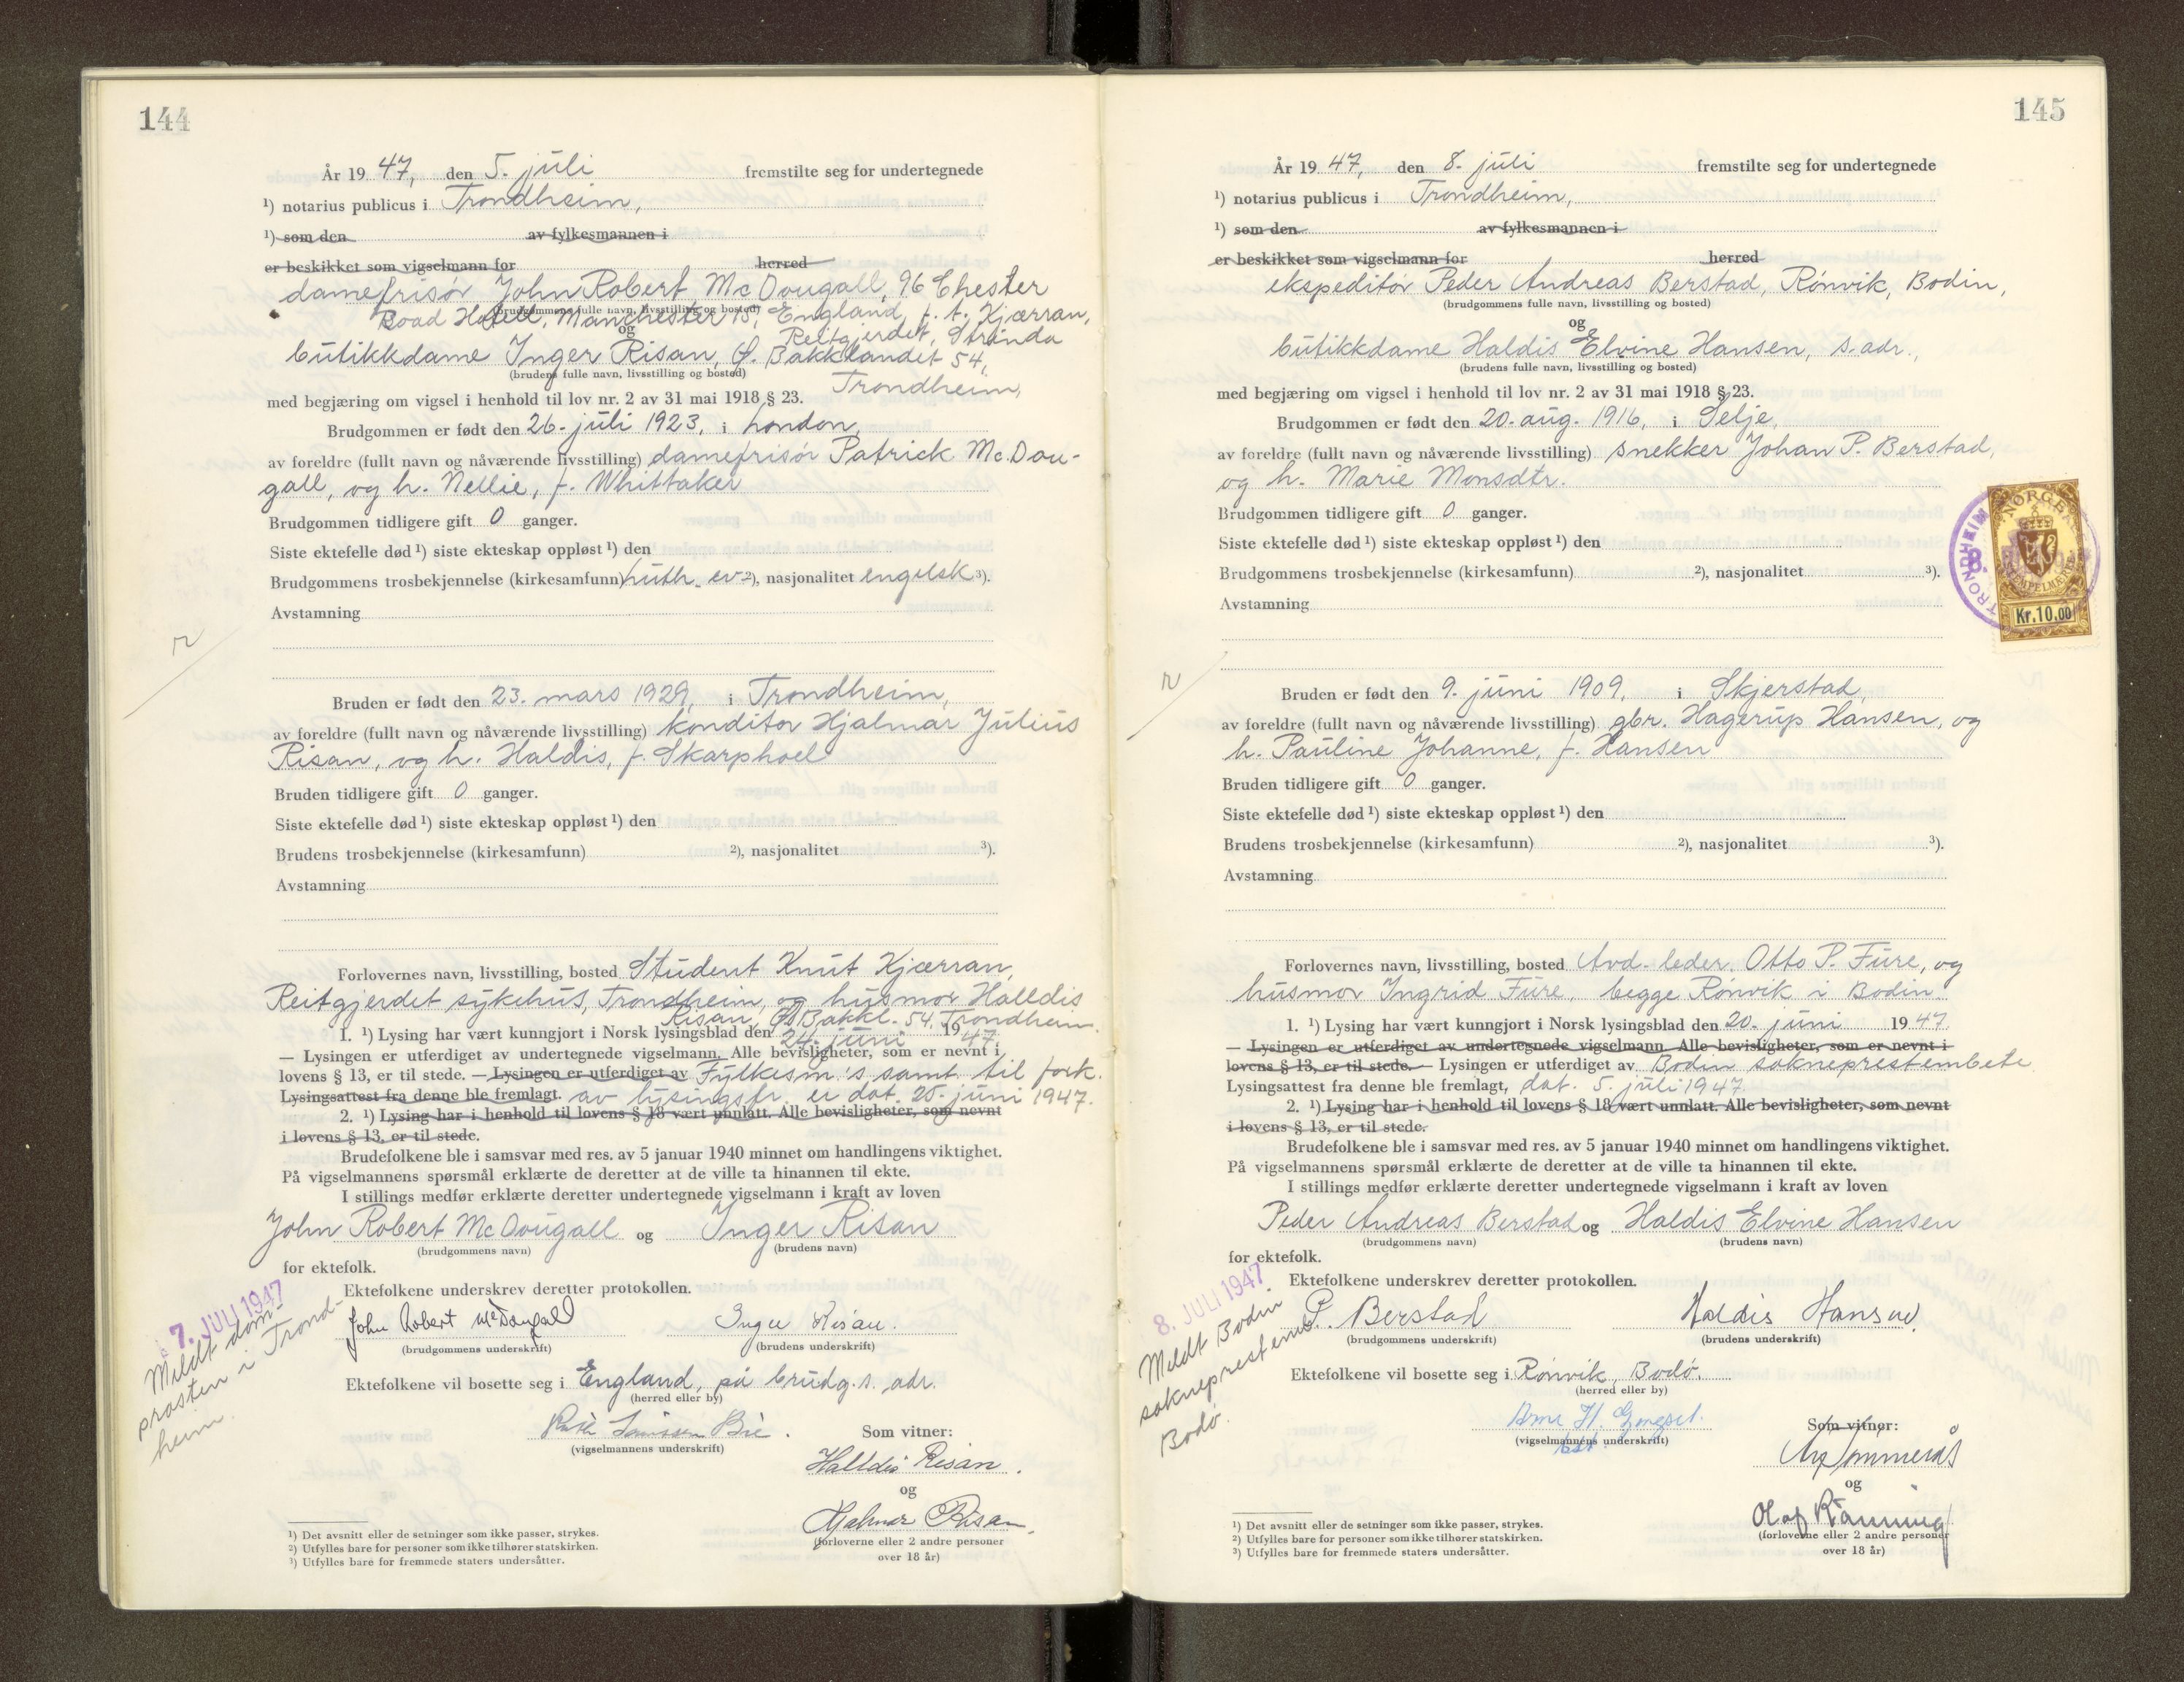 144
År 19 47, den 5. juli fremstilte seg for undertegnede
¹) notarius publicus i Trondheim,
¹) som den av fylkesmannen i
er beskikket som vigselmann for herred
damefrisør John Robert Mc Dougall, 96 Chester
(brudgommens fulle navn, livsstilling og bosted)
Road Hotell, Manchester 15, England, f. t. Kjærran,
og
Reitgjerdet, Strinda
butikkdame Inger Risan, Ø. Bakklandet 54,
(brudens fulle navn, livsstilling og bosted)
Trondheim,
med begjæring om vigsel i henhold til lov nr. 2 av 31 mai 1918 § 23.
Brudgommen er født den 26. juli 1923, i London,
av foreldre (fullt navn og nåværende livsstilling) damefrisør Patrick Mc.Dou-
gall, og h. Nellie, f. Whittaker
Brudgommen tidligere gift 0 ganger.
Siste ektefelle død ¹) siste ekteskap oppløst ¹) den
Brudgommens trosbekjennelse (kirkesamfunn) Luth. ev ²), nasjonalitet engelsk ³).
Avstamning
Bruden er født den 23. mars 1929, i Trondheim,
av foreldre (fullt navn og nåværende livsstilling) konditor Hjalmar Julius
Risan, og h. Haldis, f. Skarphoel
Bruden tidligere gift 0 ganger.
Siste ektefelle død ¹) siste ekteskap oppløst ¹) den
Brudens trosbekjennelse (kirkesamfunn) ²), nasjonalitet ³).
Avstamning
Forlovernes navn, livsstilling, bosted Student Knut Kjærran,
Reitgjerdet sykehus, Trondheim, og husmor Halldis
Risan, Ø. Bakkl. 54, Trondheim.
1. ¹) Lysing har vært kunngjort i Norsk lysingsblad den 24. juni 19 47.
— Lysingen er utferdiget av undertegnede vigselmann. Alle bevisligheter, som er nevnt i
lovens § 13, er til stede. — Lysingen er utferdiget av Fylkesm's samt. til fork.
Lysingsattest fra denne ble fremlagt. av lysingsfr. er dat. 25. juni 1947.
2. ¹) Lysing har i henhold til lovens § 18 vært unnlatt. Alle bevisligheter, som nevnt
i lovens § 13, er til stede.
Brudefolkene ble i samsvar med res. av 5 januar 1940 minnet om handlingens viktighet.
På vigselmannens spørsmål erklærte de deretter at de ville ta hinannen til ekte.
I stillings medfør erklærte deretter undertegnede vigselmann i kraft av loven
John Robert Mc Dougall og Inger Risan
(brudgommens navn) (brudens navn)
for ektefolk.
Ektefolkene underskrev deretter protokollen.
John Robert McDougall Inger Risan.
(brudgommens underskrift) (brudens underskrift)
7. JULI 1947
Meldt dom-
prosten i Trond-
heim.
Ektefolkene vil bosette seg i England, på brudg.s. adr.
(herred eller by)
(vigselmannens underskrift) Som vitner:
Halldis Risan.
og
Hjalmar Risan.
(forloverne eller 2 andre personer
over 18 år)
¹) Det avsnitt eller de setninger som ikke passer, strykes.
²) Utfylles bare for personer som ikke tilhører statskirken.
³) Utfylles bare for fremmede staters undersåtter.
145
År 19 47, den 8. juli fremstilte seg for undertegnede
¹) notarius publicus i Trondheim,
¹) som den av fylkesmannen i
er beskikket som vigselmann for herred
ekspeditør Peder Andreas Berstad, Rønvik, Bodin,
(brudgommens fulle navn, livsstilling og bosted)
og
butikkdame Haldis Elvine Hansen, s. adr.,
(brudens fulle navn, livsstilling og bosted)
med begjæring om vigsel i henhold til lov nr. 2 av 31 mai 1918 § 23.
Brudgommen er født den 20. aug. 1916, i Selje,
av foreldre (fullt navn og nåværende livsstilling) snekker Johan P. Berstad,
og h. Marie Monsdtr.
Brudgommen tidligere gift 0 ganger.
Siste ektefelle død ¹) siste ekteskap oppløst ¹) den
Brudgommens trosbekjennelse (kirkesamfunn) ²), nasjonalitet ³).
Avstamning
TRONDHEIM
8.
NORGE
STEMPELMERKE
Kr. 10,00
Bruden er født den 9. juni 1909, i Skjerstad,
av foreldre (fullt navn og nåværende livsstilling) gbr. Hagerup Hansen, og
h. Pauline Johanne, f. Hansen
Bruden tidligere gift 0 ganger.
Siste ektefelle død ¹) siste ekteskap oppløst ¹) den
Brudens trosbekjennelse (kirkesamfunn) ²), nasjonalitet ³).
Avstamning
Forlovernes navn, livsstilling, bosted Avd. leder. Otto P. Fure, og
husmor Ingrid Fure, begge Rønvik i Bodin.
1. ¹) Lysing har vært kunngjort i Norsk lysingsblad den 20. juni 19 47.
— Lysingen er utferdiget av undertegnede vigselmann. Alle bevisligheter, som er nevnt i
lovens § 13, er til stede. — Lysingen er utferdiget av Bodin sokneprestembete
Lysingsattest fra denne ble fremlagt, dat. 5. juli 1947
2. ¹) Lysing har i henhold til lovens § 18 vært unnlatt. Alle bevisligheter, som nevnt
i lovens § 13, er til stede.
Brudefolkene ble i samsvar med res. av 5 januar 1940 minnet om handlingens viktighet.
På vigselmannens spørsmål erklærte de deretter at de ville ta hinannen til ekte.
I stillings medfør erklærte deretter undertegnede vigselmann i kraft av loven
Peder Andreas Berstad og Haldis Elvine Hansen
(brudgommens navn) (brudens navn)
for ektefolk.
Ektefolkene underskrev deretter protokollen.
P. Berstad Haldis Hansen
(brudgommens underskrift) (brudens underskrift)
8. JULI 1947
Meldt Bodin
sokneprestemb.
Bodø.
Ektefolkene vil bosette seg i Rønvik, Bodø.
(herred eller by)
(vigselmannens underskrift) Som vitner:
og
Olaf Rønning
(forloverne eller 2 andre personer
over 18 år)
¹) Det avsnitt eller de setninger som ikke passer, strykes.
²) Utfylles bare for personer som ikke tilhører statskirken.
³) Utfylles bare for fremmede staters undersåtter.